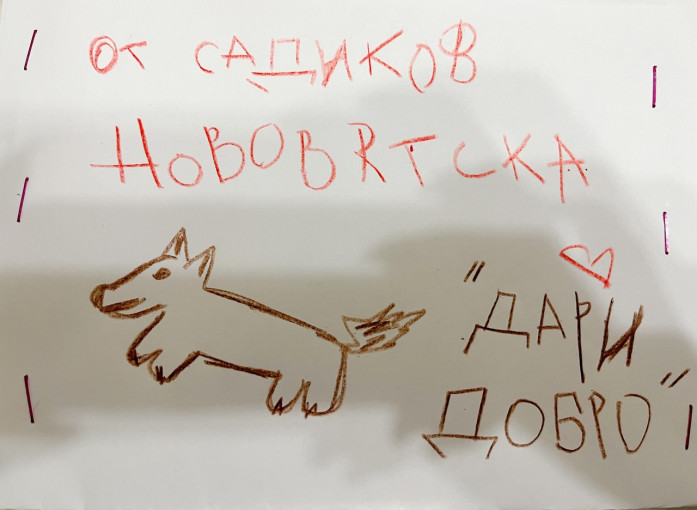 От САДИКОВ
НОВОВЯТСКА
"ДАРИ
ДОБРО"